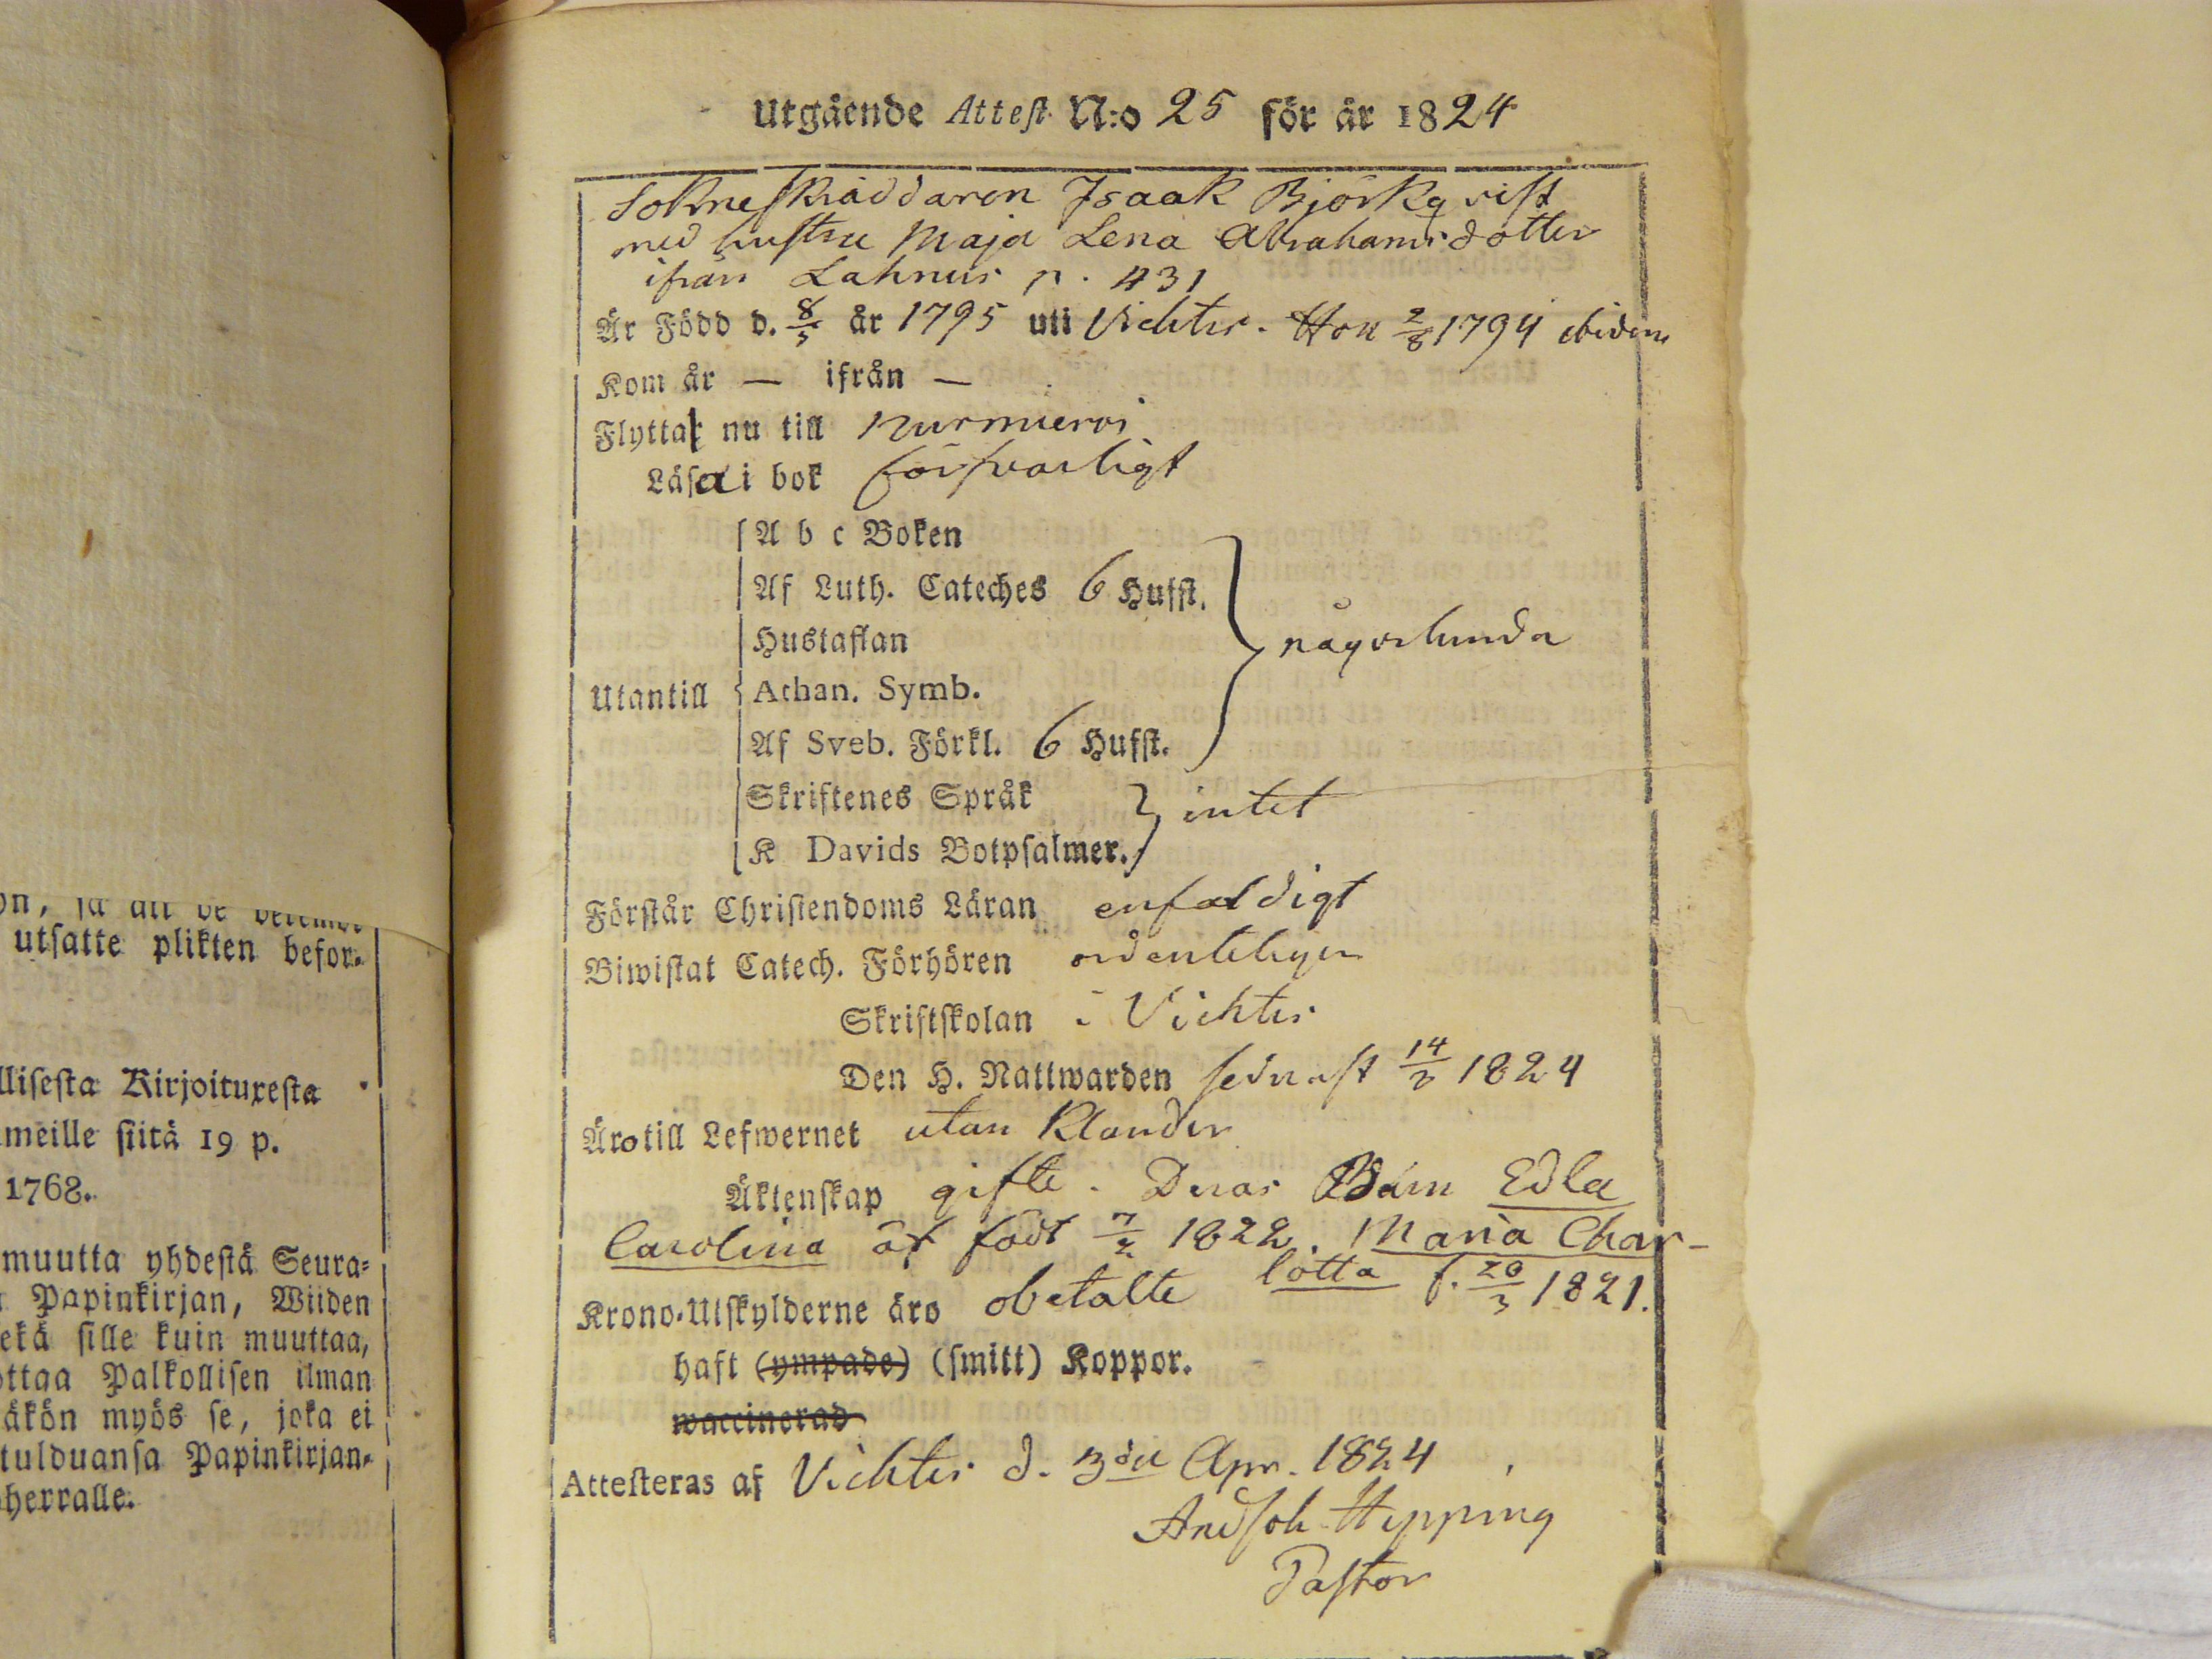 llisesta Kirjoituxesta
meille siitä 19 p.
1768.
utsatte plikten befor-
muutta yhdestä Seura-
Papinkirjan, Wiiden
ekä sille kuin muuttaa,
ottaa Palkollisen ilman
äkön myös se, joka ei
tulduansa Papinkirjan-
herralle.
Utgående Attest N:o 25 för år 1824
Sokneskräddaren Isaak Björkqvist
med hustru Maja Lena Abrahamsdotter
ifrån Lahnus p. 431
Är Född d. 8/5 år 1795 uti Vichtis. Hon 2/8 1794 ibidem
Kom år — ifrån —
Flytta nu till Nurmijervi
Läsa i bok försvarligt
A b c Boken
Af Luth. Cateches 6 Hufst.
Hustaflan någorlunda
Utantill Athan. Symb.
Af Sveb. Förkl. 6 Hufst.
Skriftenes Språk intet
K Davids Botpsalmer.
Förstår Christendoms Läran enfaldigt
Biwistat Catech. Förhören ordenteligen
Skriftskolan i Vichtis
Den H. Nattwarden sednast 14/3 1824
Äro till Lefwernet utan Klander
Äktenskap gifte. Deras Barn Edla
Carolina är född 7/2 1822. Maria Char-
lotta f. 20/3 1821.
Krono-Utskylderne äro obetalte
haft (ympade) (smitt) Koppor.
waccinerad
Attesteras af Vichtis d. 3die Apr. 1824
And Joh. Hipping
Pastor